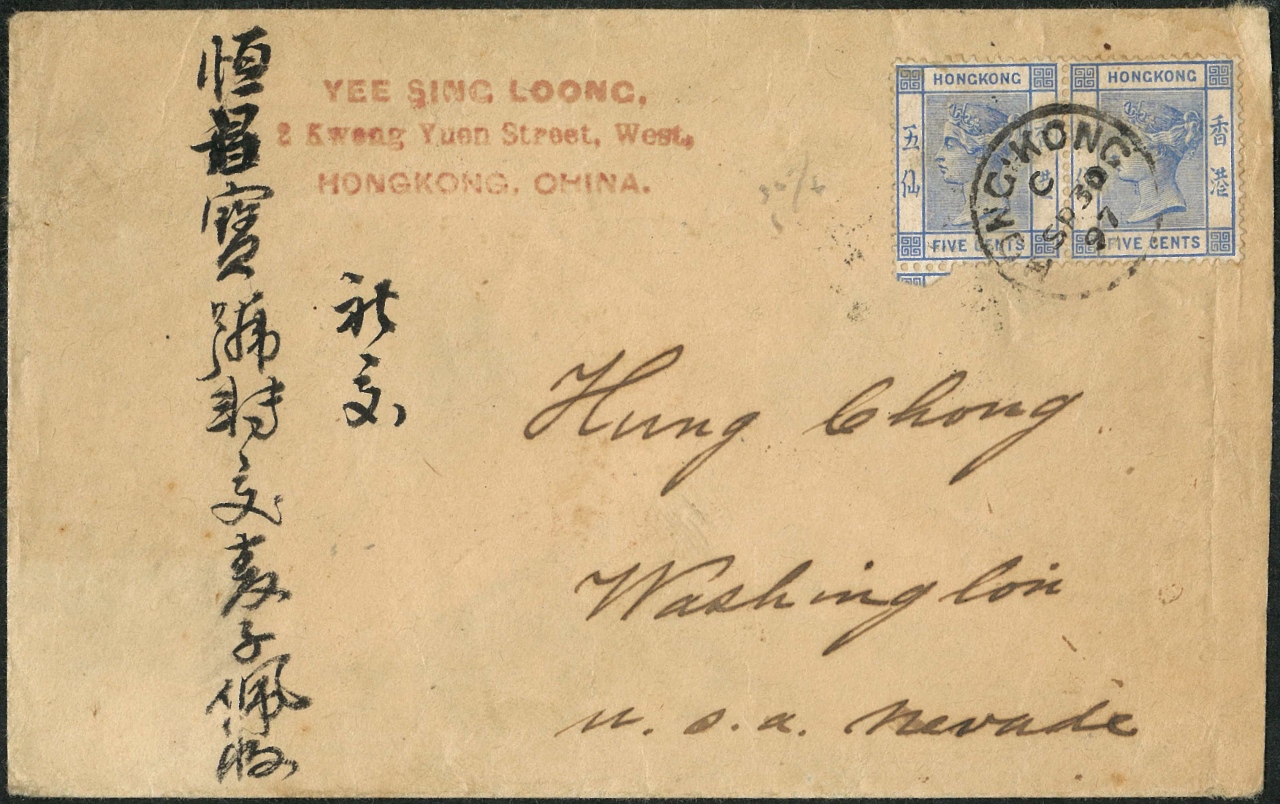 YEE SING LOONG,
2 Kwong Yuen Street, West,
HONGKONG, CHINA.
HONGKONG
五仙
FIVE CENTS
HONGKONG
香港
FIVE CENTS
HONG KONG
C
SP 30
97
恒昌寶號轉交麥子佩收
社交
Hung Chong
Washington
u. s. a. Nevade